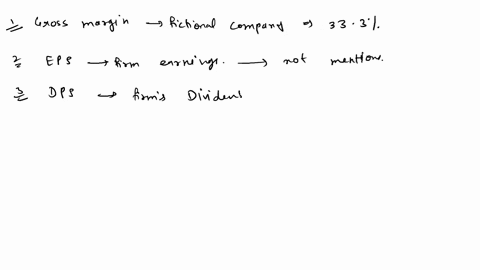 1 Gross margin → fictional company ⇒ 33.3%.
2 EPS → firm earnings. → not mention.
3 DPS → firm's Dividend